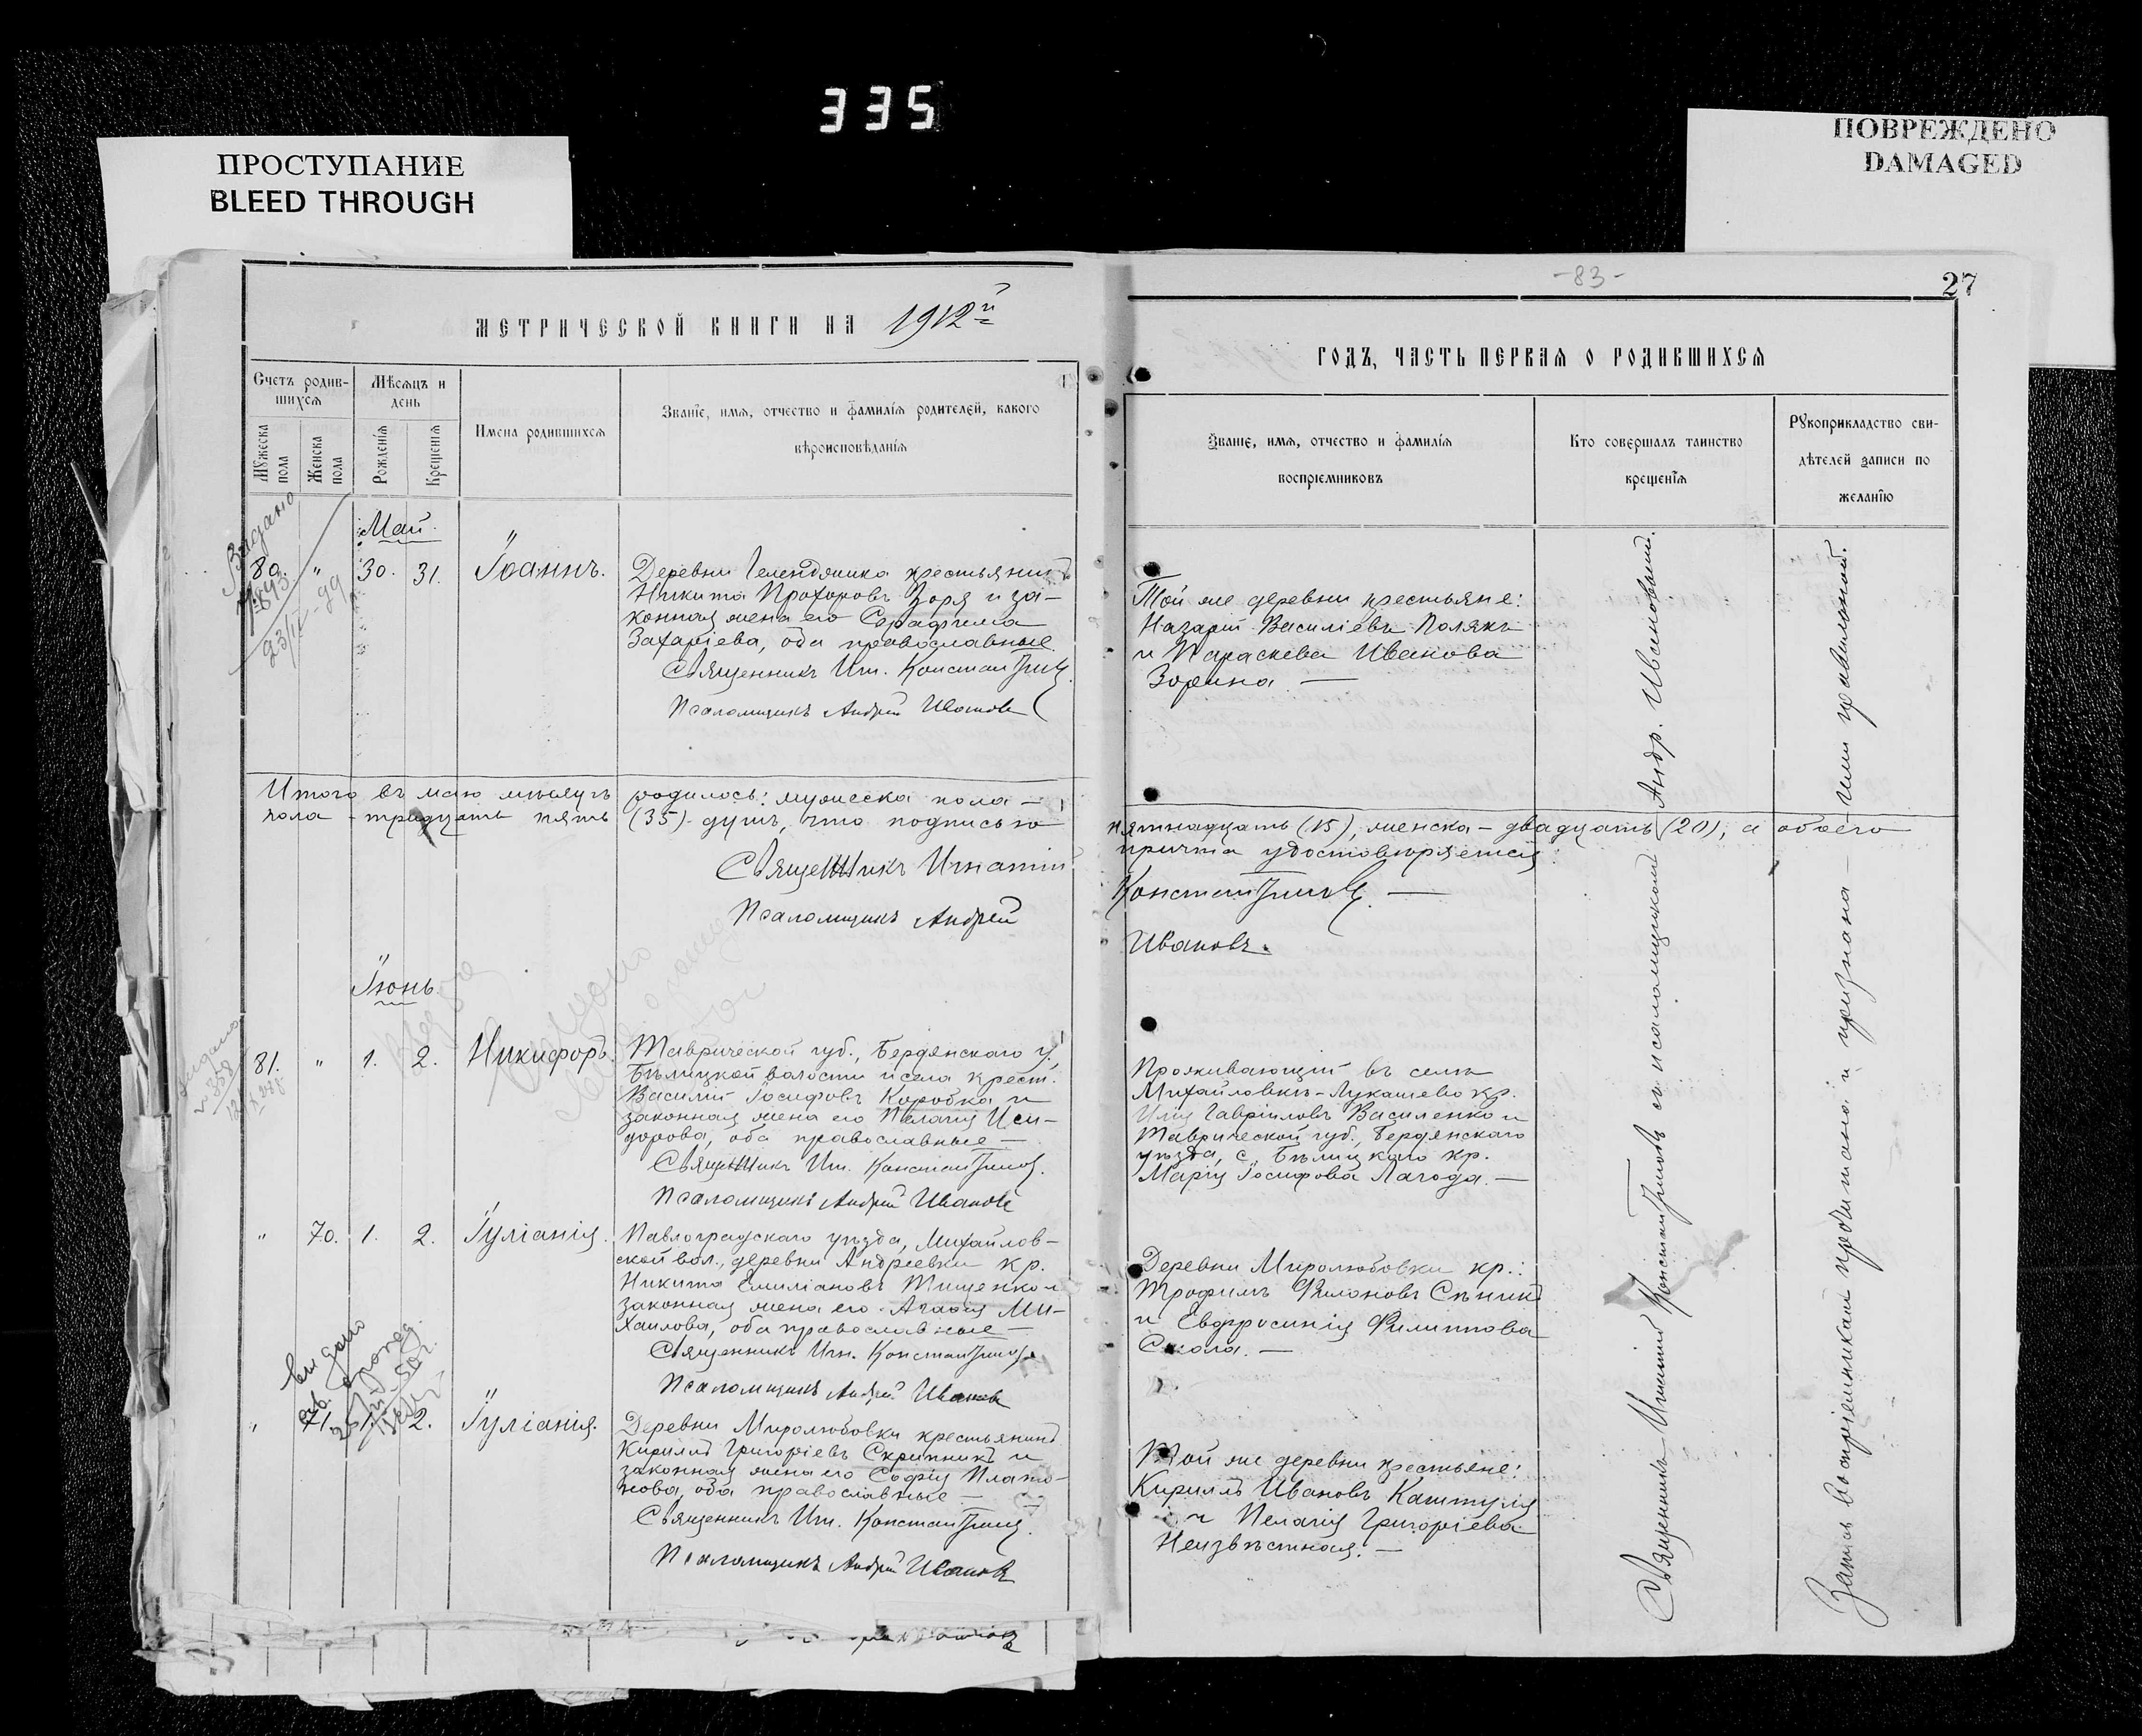 335
ПРОСТУПАНИЕ
BLEED THROUGH
ПОВРЕЖДЕНО
DAMAGED
МЕТРИЧЕСКОЙ КНИГИ НА 1912й
Счетъ родив-
шихся
Мужеска
пола
Женска
пола
Мѣсяцъ и
день
Рожденія
Крещенія
Имена родившихся
Званіе, имя, отчество и фамилія родителей, какого
вѣроисповѣданія
Выдано
Май.
80. " 30. 31. Іоаннъ.
Деревни Гелендяника крестьянинъ
Никита Прохоровъ Зоря и за-
конная жена его Серафима
Захаріева, оба православные
Священникъ Игн. Константиновъ.
Псаломщикъ Андрей Ивановъ
Итого въ маѣ мѣсяцѣ родилось: мужеска пола –
пола – тридцать пять (35) душъ, что подписью
Священникъ Игнатій
Псаломщикъ Андрей
Іюнь
81. " 1. 2. Никифоръ.
Таврической губ., Бердянскаго у.,
Бѣлицкой волости и села крест.
Василій Іосифовъ Коробка и
законная жена его Пелагія Иси-
дорова, оба православные –
Священникъ Игн. Константиновъ.
Псаломщикъ Андрей Ивановъ
" 70. 1. 2. Іуліанія.
Павлоградскаго уѣзда, Михайлов-
ской вол., деревни Андреевки кр.
Никита Емиліановъ Тищенко и
законная жена его Агафія Ми-
хаилова, оба православные –
Священникъ Игн. Константиновъ
Псаломщикъ Андрей Ивановъ
выдано
" 71. 1. 2. Іуліанія.
Деревни Миролюбовки крестьянинъ
Кириллъ Григоріевъ Скрипникъ и
законная жена его Софія Плато-
нова, оба православные –
Священникъ Игн. Константиновъ.
Псаломщикъ Андрей Ивановъ
-83-
27
ГОДЪ, ЧАСТЬ ПЕРВАЯ О РОДИВШИХСЯ
Званіе, имя, отчество и фамилія
воспріемниковъ
Кто совершалъ таинство
крещенія
Рукоприкладство сви-
дѣтелей записи по
желанію
Той же деревни крестьяне:
Назарій Василіевъ Полякъ
и Параскева Иванова
Зорина –
пятнадцать (15), женска – двадцать (20), а обоего
причта удостовѣряется:
Константиновъ. –
Ивановъ.
Проживающій въ селѣ
Михайловкѣ-Лукашево кр.
Илія Гавріиловъ Василенко и
Таврической губ., Бердянскаго
уѣзда, с. Бѣлицкаго кр.
Марія Іосифова Лагода. –
Деревни Миролюбовки кр.:
Трофимъ Филоновъ Сѣникъ
и Евфросинія Филиппова
Сокола. –
Той же деревни крестьяне:
Кириллъ Ивановъ Каштуля
и Пелагія Григоріева
Неизвѣстная. –
Священникъ Игнатій Константиновъ съ псаломщикомъ Андр. Ивановымъ.
Запись воспріемникам прочитана и признана – ими правильной.